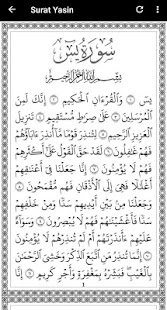 Surat Yasin
سُورَةُ يسٓ
بِسْمِ ٱللَّهِ ٱلرَّحْمَٰنِ ٱلرَّحِيمِ
يسٓ ۝١ وَٱلْقُرْءَانِ ٱلْحَكِيمِ ۝٢ إِنَّكَ لَمِنَ
ٱلْمُرْسَلِينَ ۝٣ عَلَىٰ صِرَٰطٍ مُّسْتَقِيمٍ ۝٤ تَنزِيلَ
ٱلْعَزِيزِ ٱلرَّحِيمِ ۝٥ لِتُنذِرَ قَوْمًا مَّآ أُنذِرَ ءَابَآؤُهُمْ
فَهُمْ غَٰفِلُونَ ۝٦ لَقَدْ حَقَّ ٱلْقَوْلُ عَلَىٰٓ أَكْثَرِهِمْ
فَهُمْ لَا يُؤْمِنُونَ ۝٧ إِنَّا جَعَلْنَا فِىٓ أَعْنَٰقِهِمْ أَغْلَٰلًا
فَهِىَ إِلَى ٱلْأَذْقَانِ فَهُم مُّقْمَحُونَ ۝٨ وَجَعَلْنَا
مِنۢ بَيْنِ أَيْدِيهِمْ سَدًّا وَمِنْ خَلْفِهِمْ سَدًّا
فَأَغْشَيْنَٰهُمْ فَهُمْ لَا يُبْصِرُونَ ۝٩ وَسَوَآءٌ
عَلَيْهِمْ ءَأَنذَرْتَهُمْ أَمْ لَمْ تُنذِرْهُمْ لَا يُؤْمِنُونَ ۝١٠
إِنَّمَا تُنذِرُ مَنِ ٱتَّبَعَ ٱلذِّكْرَ وَخَشِىَ ٱلرَّحْمَٰنَ
بِٱلْغَيْبِ فَبَشِّرْهُ بِمَغْفِرَةٍ وَأَجْرٍ كَرِيمٍ ۝١١
1